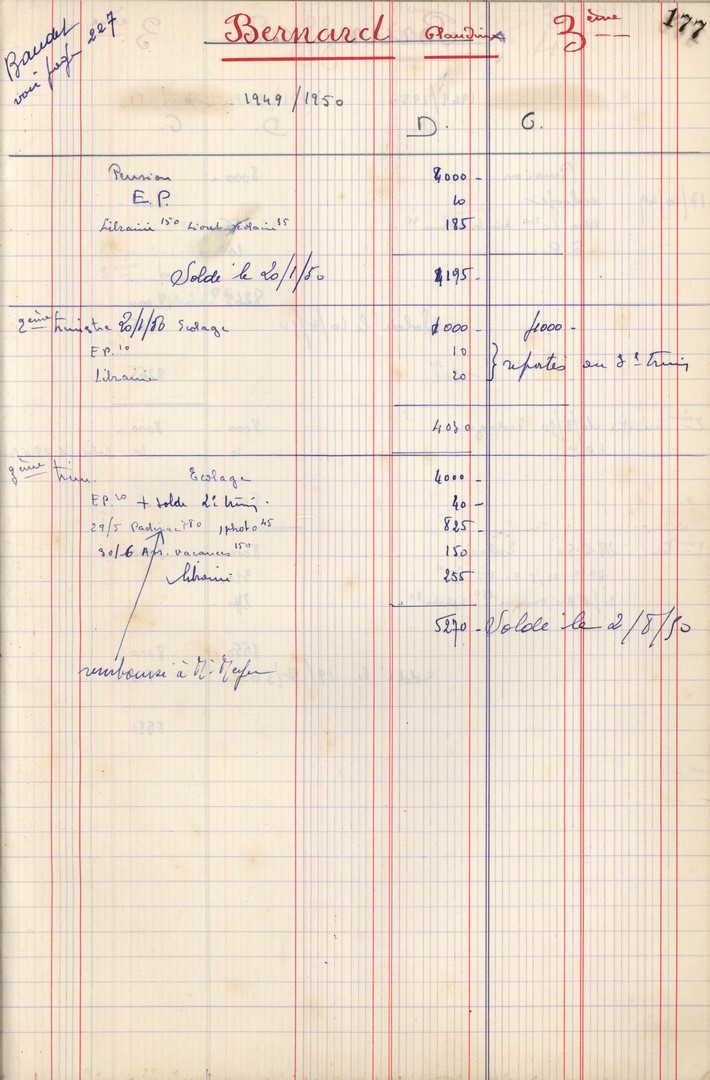 Baudet
voir page 227
Bernard Claudine 3ème 177
1949/1950
D. C.
Pension 4000 -
E.P. 10
Librairie 150 Livret scolaire 35 185
Solde le 20/1/50 4195 -
2ème trimestre 20/1/50 Ecolage 4000 - 4000 -
E.P. 10 10 } reportés au 3e trim
Librairie 20
4030
3ème trim. Ecolage 4000 -
E.P. 10 + solde 2e trim. 40 -
29/5 780 photo 45 825
30/6 vacances 150 150
librairie 255
5270 - Solde le 2/8/50
remboursé à M.